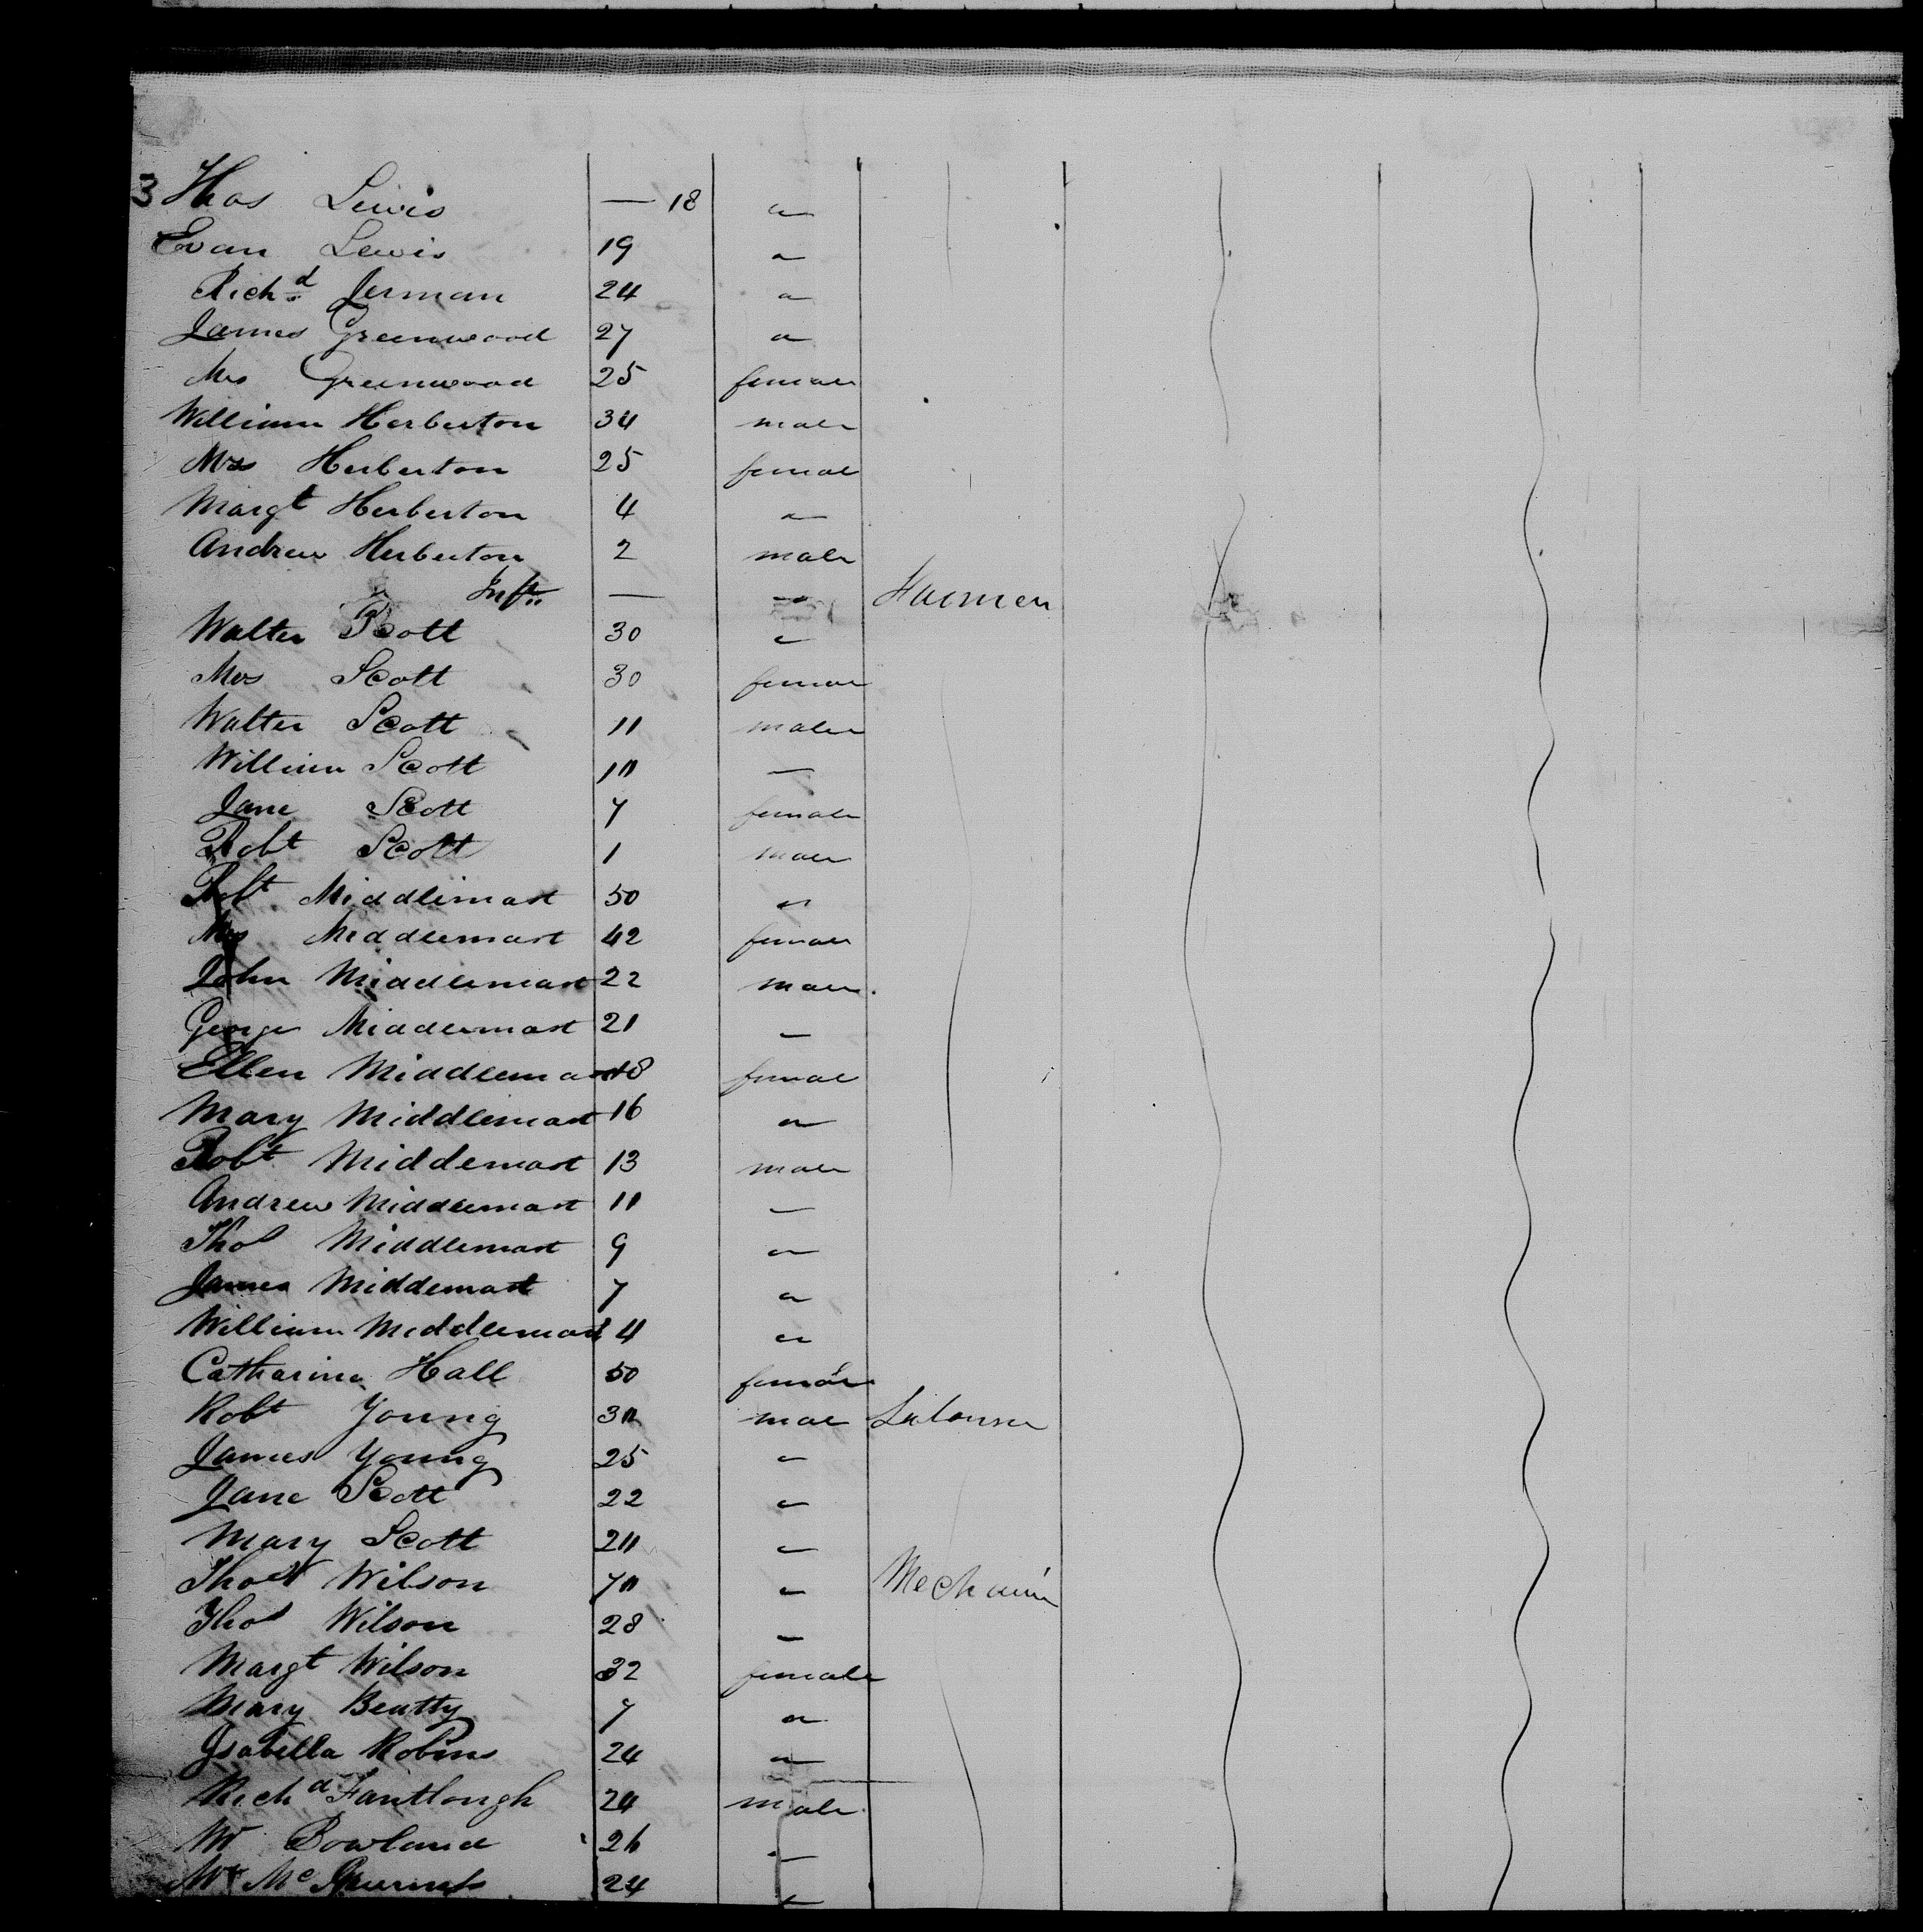 3 Thos Lewis — 18 "
Evan Lewis 19 "
Richd Jerman 24 "
James Greenwood 27 "
Mrs Greenwood 25 female
William Herberton 34 male
Mrs Herberton 25 female
Margt Herberton 4 "
Andrew Herberton 2 male
" Inft. — " Farmer
Walter Scott 30 "
Mrs Scott 30 female
Walter Scott 11 male
William Scott 10 "
Jane Scott 7 female
Robt Scott 1 male
Robt Middlemast 50 "
Mrs Middlemast 42 female
John Middlemast 22 male
George Middlemast 21 "
Ellen Middlemast 18 female
Mary Middlemast 16 "
Robt Middlemast 13 male
Andrew Middlemast 11 "
Thos Middlemast 9 "
James Middlemast 7 "
William Middlemast 4 "
Catharine Hall 50 female
Robt Young 30 male Labourer
James Young 25 "
Jane Scott 22 "
Mary Scott 20 "
Thos Wilson 70 " Mechanic
Thos Wilson 28 "
Margt Wilson 32 female
Mary Beatty 7 "
Isabella Robins 24 "
Richd Fantlough 24 male
W Bowland 26 "
Mr Mc 24 "